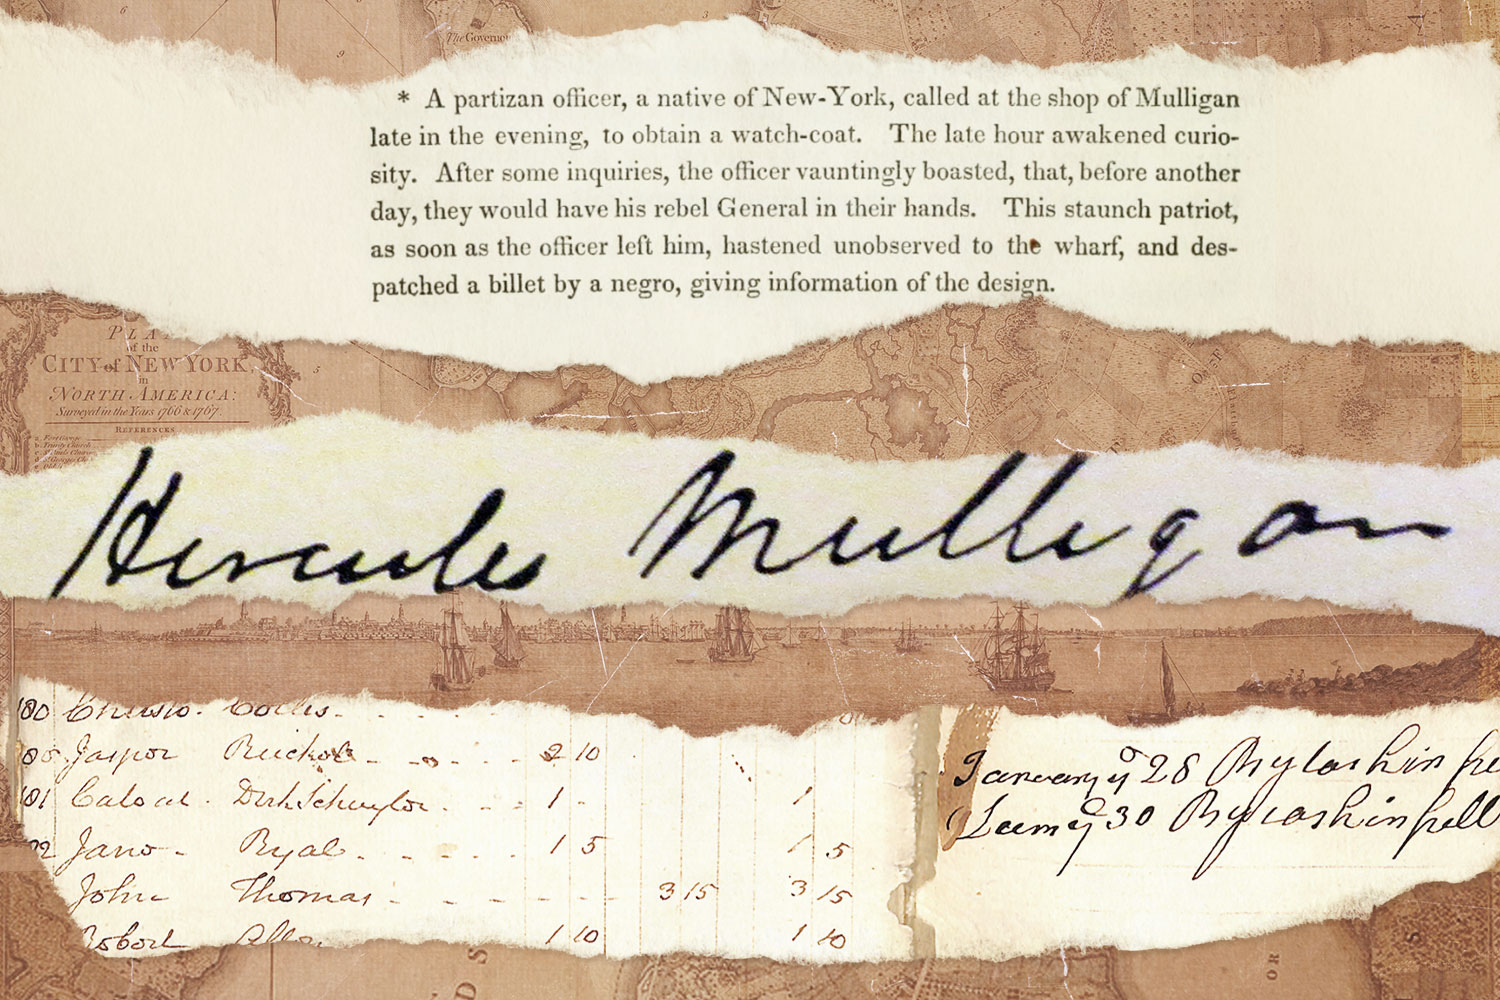 The Governor
* A partizan officer, a native of New-York, called at the shop of Mulligan
late in the evening, to obtain a watch-coat. The late hour awakened curio-
sity. After some inquiries, the officer vauntingly boasted, that, before another
day, they would have his rebel General in their hands. This staunch patriot,
as soon as the officer left him, hastened unobserved to the wharf, and des-
patched a billet by a negro, giving information of the design.
PLA
of the
CITY of NEW YORK
in
NORTH AMERICA:
Surveyed in the Years 1766 & 1767.
REFERENCES
Hercules Mulligan
180
Jaspor 2 10
Dirk Schuylor 1 1
Jano Ryal 1 5 1 5
John Thomas 3 15 3 15
Robort 1 10 1 10
January ye 28 By Cash in full
30 By Cash in full
OR
S